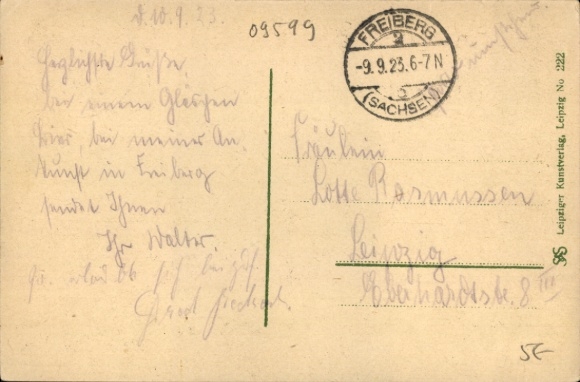 d. 10.9.23.
09599
FREIBERG
2
-9.9.23.6-7N
(SACHSEN)
Herzlichste Grüße
bei einem Gläschen
Bier, bei meiner An-
kunft in Freiberg
sendet Ihnen
Ihr Walter.
Fräulein
Lotte Rasmussen
Leipzig
Eberhardtstr. 8 III
Leipziger Kunstverlag, Leipzig No 222
5€